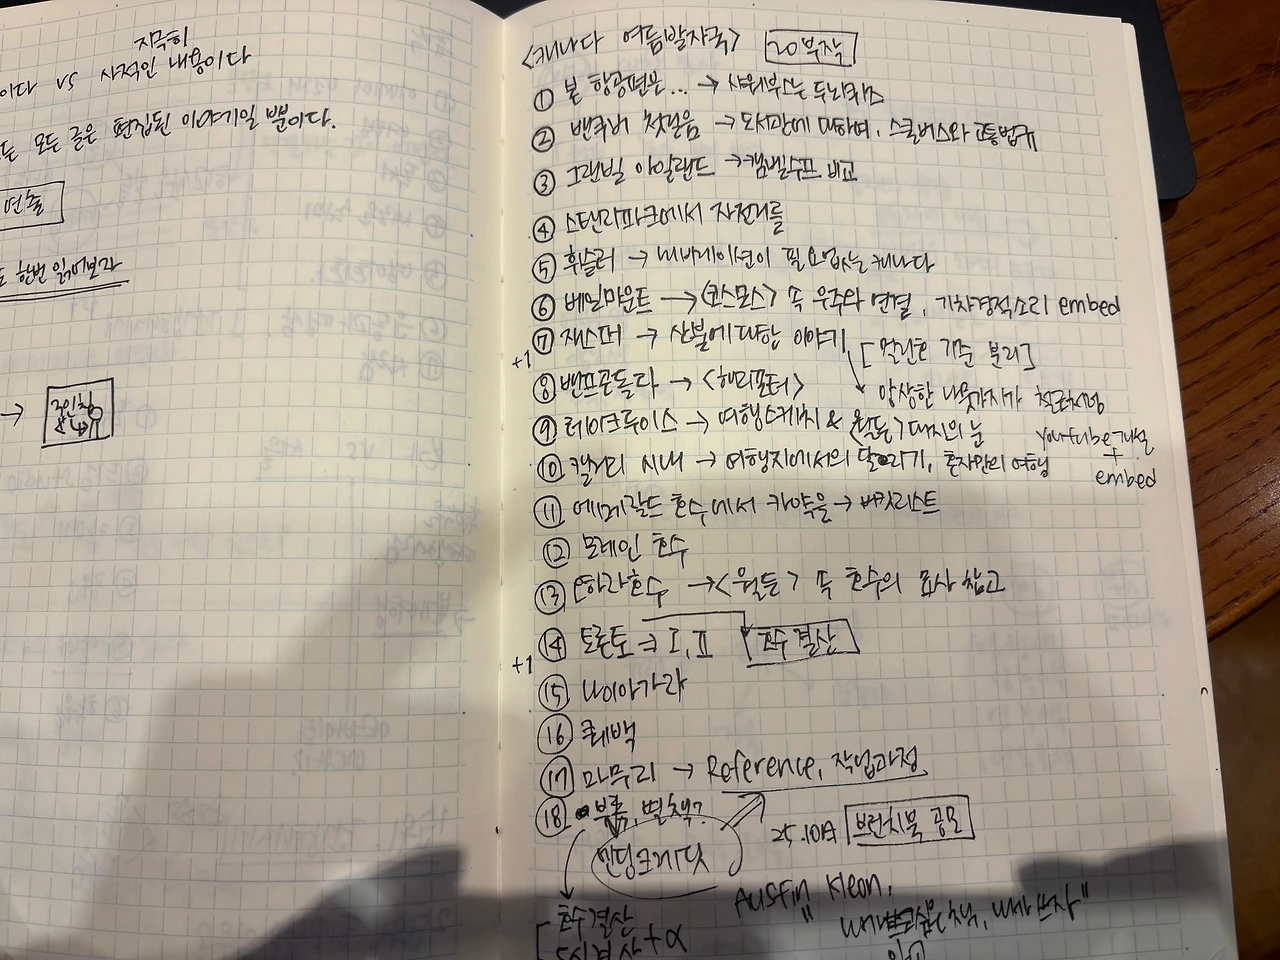 지극히
이다 vs 사적인 내용이다
모든 글은 편집된 이야기일 뿐이다.
연출
한번 읽어보자
→ 3인칭
<캐나다 여름발자국> 20부작
① 본 항공편은... → 샤워부스는 두뇌퀴즈
② 밴쿠버 첫걸음 → 도서관에 대하여, 스쿨버스와 교통법규
③ 그랜빌 아일랜드 → 캠벨수프 비교
④ 스탠리파크에서 자전거를
⑤ 휘슬러 → 내비게이션이 필요없는 캐나다
⑥ 베일마운트 → <코스모스> 속 우주와 연결, 기차경적소리 embed
+1 ⑦ 재스퍼 → 산불에 대한 이야기 [멀린호 기준 분리]
앙상한 나뭇가지가 철근처럼
⑧ 밴프곤돌라 → <해리포터>
⑨ 레이크루이스 → 여행스케치 & <월든> 대지의 눈
youtube 개설
+
embed
⑩ 캘거리 시내 → 여행지에서의 달리기, 혼자만의 여행
⑪ 에메랄드 호수에서 카약을 → 버킷리스트
⑫ 모레인 호수
⑬ 오하라호수 → <월든> 속 호수의 묘사 참고
+1 ⑭ 토론토 ⇒ I, II 호수 결산
⑮ 나이아가라
⑯ 퀘벡
⑰ 마무리 → Reference, 작업과정
⑱ 부록, 별책?
엔딩크레딧
25.10月 브런치북 공모
Austin Kleon,
호수결산
도시결산 + α